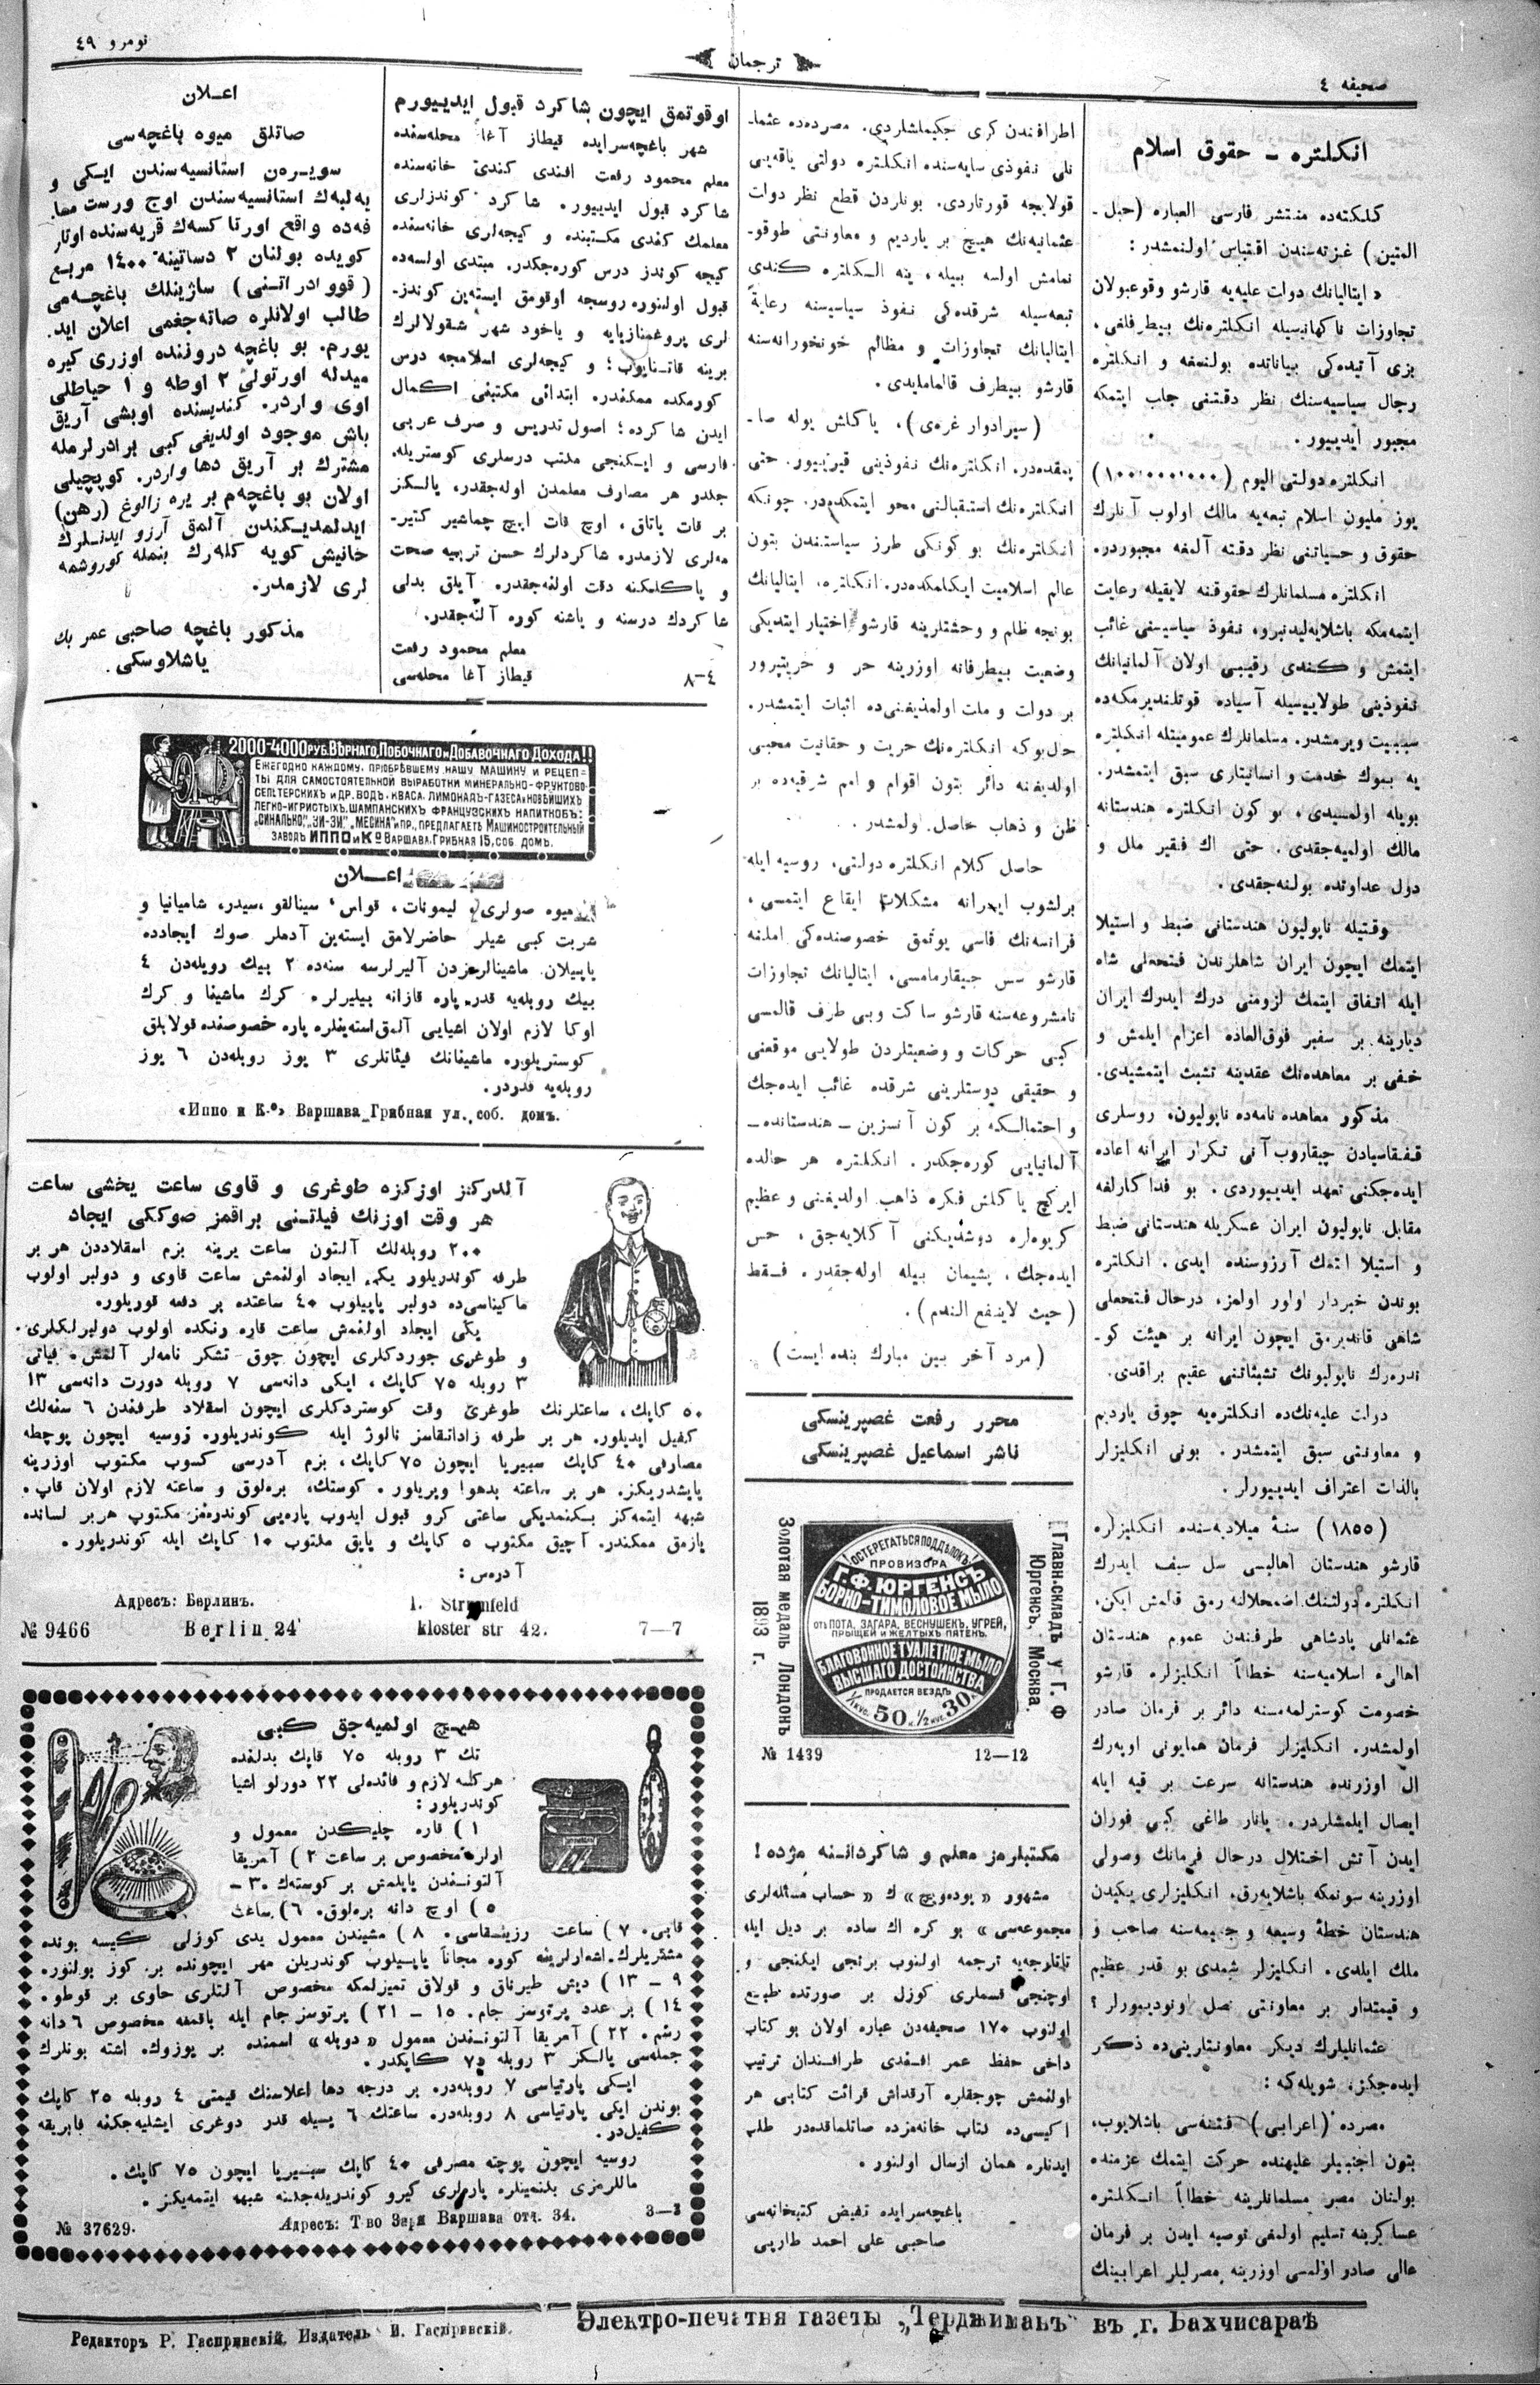 صحیفه ٤
ترجمان
نومرو ٤٩
انکلتره – حقوق اسلام
کلکته‌ده منتشر فارسی العباره (حبل-
المتین) غزته‌سندن اقتباس اولنمشدر:
« ایتالیانك دولت علیه‌یه قارشو وقوعبولان
تجاوزات ناکهانیسیله انکلتره‌نك بیطرفلغی،
بزی آتیده‌کی بیاناتده بولنمغه و انکلتره
رجال سیاسیه‌سنك نظر دقتنی جلب ایتمکه
مجبور ایدییور.
انکلتره دولتی الیوم (١٠٠٠٠٠٠٠٠)
یوز ملیون اسلام تبعه‌یه مالك اولوب آنلرك
حقوق و حسیاتنی نظر دقته آلمغه مجبوردر.
انکلتره مسلمانلرك حقوقنه لایقیله رعایت
ایتمه‌مکه باشلایه‌لیدنبرو، نفوذ سیاسیسنی غائب
ایتمش و کندی رقیبی اولان آلمانیانك
نفوذینی طولاییسیله آسیاده قوتلندیرمکه‌ده
سببیت ویرمشدر. مسلمانلرك عمومیتله انکلتره
یه بیوك خدمت و انسانیتلری سبق ایتمشدر.
بویله اولمسیدی، بو کون انکلتره هندستانه
مالك اولمیه‌جقدی. حتی اك فقیر ملل و
دول عدادنده بولنه‌جقدی.
وقتیله ناپولیون هندستانی ضبط و استیلا
ایتمك ایچون ایران شاهلرندن فتحعلی شاه
ایله اتفاق ایتمك لزومنی درك ایدرك ایران
دیارینه بر سفیر فوق‌العاده اعزام ایلمش و
خفی بر معاهده‌نك عقدینه تشبث ایتمشیدی.
مذکور معاهده نامه‌ده ناپولیون، روسلری
قفقاسیادن چیقاروب آنی تکرار ایرانه اعاده
ایده‌جکنی تعهد ایدییوردی. بو فداکارلغه
مقابل ناپولیون ایران عسکریله هندستانی ضبط
و استیلا اتمك آرزوسنده ایدی. انکلتره
بوندن خبردار اولور اولمز، درحال فتحعلی
شاهی قاندیرمق ایچون ایرانه بر هیئت کو-
ندره‌رك ناپولیونك تشبثاتنی عقیم براقدی.
دولت علیه‌نك‌ده انکلتره‌یه چوق یاردیم
و معاونتی سبق ایتمشدر. بونی انکلیزلر
بالذات اعتراف ایدییورلر.
(١٨٥٥) سنهٔ میلادیه‌سنده انکلیزلره
قارشو هندستان اهالیسی سل سیف ایدرك
انکلتره دولتنك اضمحلالنه رمق قالمش ایکن،
عثمانلی پادشاهی طرفندن عموم هندستان
اهالیء اسلامیه‌سنه خطاباً انکلیزلره قارشو
خصومت کوسترلمه‌مسنه دائر بر فرمان صادر
اولمشدر. انکلیزلر فرمان همایونی اوپه‌رك
ال اوزرنده هندستانه سرعت بر قیه ایله
ایصال ایلمشلردر. یانار طاغی کبی فوران
ایدن آتش اختلال درحال فرمانك وصولی
اوزرینه سونمکه باشلایه‌رق، انکلیزلری یکیدن
هندستان خطهٔ وسیعه و جسیمه‌سنه صاحب و
ملك ایلدی. انکلیزلر شمدی بو قدر عظیم
و قیمتدار بر معاونتی نصل اونودییورلر؟
عثمانلیلرك دیکر معاونتلرینی‌ده ذکر
ایده‌جکز، شویله‌که:
مصرده (اعرابی) فتنه‌سی باشلایوب،
بتون اجنبیلر علیهنده حرکت ایتمك عزمنده
بولنان مصر مسلمانلرینه خطاباً انکلتره
عساکرینه تسلیم اولمغی توصیه ایدن بر فرمان
عالی صادر اولمسی اوزرینه مصرلیلر اعرابینك
اطرافندن کری چکیلمشلردی. مصرده‌ده عثما-
نلی نفوذی سایه‌سنده انکلتره دولتی یاقه‌یی
قولایجه قورتاردی. بونلردن قطع نظر دولت
عثمانیه‌نك هیچ بر یاردیم و معاونتی طوقو-
نمامش اولسه بیله، ینه انکلتره کندی
تبعه‌سیله شرقده‌کی نفوذ سیاسیسنه رعایةً
ایتالیانك تجاوزات و مظالم خونخورانه‌سنه
قارشو بیطرف قالمامالیدی.
(سیرادوار غره‌ی)، یا کلش یوله صا-
پمقده‌در. انکلتره‌نك نفوذینی قیرییور. حتی
انکلتره‌نك استقبالنی محو ایتمکده‌در. چونکه
انکلتره‌نك بو کونکی طرز سیاستندن بتون
عالم اسلامیت ایکلمکده‌در. انکلتره، ایتالیانك
بونجه ظلم و وحشتلرینه قارشو اختیار ایتدیکی
وضعیت بیطرفانه اوزرینه حر و حریتپرور
بر دولت و ملت اولمدیغنی‌ده اثبات ایتمشدر.
حال‌بوکه انکلتره‌نك حریت و حقانیت محبی
اولدیغنه دائر بتون اقوام و امم شرقیه‌ده بر
ظن و ذهاب حاصل اولمشدر.
حاصل کلام انکلتره دولتی، روسیه ایله
برلشوب ایرانه مشکلات ایقاع ایتمسی،
فرانسه‌نك فاسی یوتمق خصوصنده‌کی املنه
قارشو سس چیقارمامسی، ایتالیانك تجاوزات
نامشروعه‌سنه قارشو ساکت وبی طرف قالمسی
کبی حرکات و وضعیتلردن طولایی موقعنی
و حقیقی دوستلرینی شرقده غائب ایده‌جك
و احتمالکه بر کون آنسزین – هندستانده –
آلمانیایی کوره‌جکدر. انکلتره هر حالده
ایرکچ یا کلش فکره ذاهب اولدیغنی و عظیم
کریوه‌لره دوشدیکنی آ کلایه‌جق، حس
ایده‌جك، پشیمان بیله اوله‌جقدر. فقط
(حیث لاینفع الندم).
(مرد آخر بین مبارك بنده ایست)
محرر رفعت غصپرینسکی
ناشر اسماعیل غصپرینسکی
Главн.складъ у Г. Ф
Юргенсъ, Москва.
ОСТЕРЕГАТЬСЯ ПОДДѢЛОКЪ
ПРОВИЗОРА
Г. Ф. ЮРГЕНСЪ
БОРНО-ТИМОЛОВОЕ МЫЛО
отъ ПОТА, ЗАГАРА, ВЕСНУШЕКЪ, УГРЕЙ,
ПРЫЩЕЙ И ЖЕЛТЫХЪ ПЯТЕНЪ.
БЛАГОВОННОЕ ТУАЛЕТНОЕ МЫЛО
ВЫСШАГО ДОСТОИНСТВА
ПРОДАЕТСЯ ВЕЗДѢ
1/1 кус. 50 к. 1/2 кус. 30 к.
Золотая медаль Лондонъ
1893 г.
№ 1439 12—12
مکتبلرمز معلم و شاکرداننه مژده!
مشهور « یوده‌ویچ » ك « حساب مسئله‌لری
مجموعه‌سی » بو کره اك ساده بر دیل ایله
تاتارجه‌یه ترجمه اولنوب برنجی ایکنجی و
اوچنجی قسملری کوزل بر صورتده طبع
اولنوب ١٧٠ صحیفه‌دن عباره اولان بو کتاب
داخی حفظ عمر افندی طرافندان ترتیب
اولنمش چوجقلره آرقداش قرائت کتابی هر
ایکیسی‌ده کتاب خانه‌مزده صاتلماقده‌در طلب
ایدنلره همان ارسال اولنور.
باغچه‌سرایده تفیض کتبخانه‌سی
صاحبی علی احمد طارپی
اوقوتمق ایچون شاکرد قبول ایدییورم
شهر باغچه‌سرایده قیطاز آغا محله‌سنده
معلم محمود رفعت افندی کندی خانه‌سنده
شاکرد قبول ایدییور. شاکرد کوندزلری
معلمك کندی مکتبنده و کیجه‌لری خانه‌سنده
کیجه کوندز درس کوره‌جکدر. مبتدی اولسه‌ده
قبول اولنور، روسجه اوقومق ایسته‌ین کوندز-
لری پروغمنازیایه و یاخود شهر شقولالرك
برینه قاتنایوب؛ و کیجه‌لری اسلامجه درس
کورمکده ممکندر. ابتدائی مکتبنی اکمال
ایدن شاکرده؛ اصول تدریس و صرف عربی
فارسی و ایکنجی مکتب درسلری کوستریله.
جلدو هر مصارف معلمدن اوله‌جقدر، یالکز
بر قات یاتاق، اوچ قات ایچ چماشیر کتیر-
مه‌لری لازمدر، شاکردلرك حسن تربیه صحت
و پاکلکنه دقت اولنه‌جقدر. آیلق بدلی
شاکردك درسنه و یاشنه کوره آلنه‌جقدر.
معلم محمود رفعت
قیطاز آغا محله‌سی
٨–٤
اعلان
صاتلق میوه باغچه‌سی
سویره‌ن استانسیه‌سندن ایکی و
به‌لبه‌ك استانسیه‌سندن اوچ ورست مسا-
فه‌ده واقع اورتا کسه‌ك قریه‌سنده اوتار
کویده بولنان ٢ دساتینه ١٤٠٠ مربع
(قووادراتنی) ساژینلك باغچه‌می
طالب اولانلره صاته‌جغمی اعلان اید-
یورم. بو باغچه دروزنده اوزری کیره
میدله اورتولی ٢ اوطه و ١ حیاطلی
اوی واردر. کندیسنده اوبشی آریق
باش موجود اولدیغی کبی برادرلرمله
مشترك بر آریق دها واردر. کوپچیلی
اولان بو باغچه‌م بر یره زالوغ (رهن)
ایدلمدیکندن آلمق آرزو ایدنلرك
خانیش کویه کله‌رك بنمله کوروشمه
لری لازمدر.
مذکور باغچه صاحبی عمر بك
یاشلاوسکی.
2000-4000 РУБ. ВѢРНАГО, ПОБОЧНАГО и ДОБАВОЧНАГО ДОХОДА!!
ЕЖЕГОДНО КАЖДОМУ, ПРІОБРѢВШЕМУ НАШУ МАШИНУ И РЕЦЕП=
ТЫ ДЛЯ САМОСТОЯТЕЛЬНОЙ ВЫРАБОТКИ МИНЕРАЛЬНО-ФРУКТОВО-
СЕЛЬТЕРСКИХЪ И ДР. ВОДЪ, КВАСА, ЛИМОНАДЪ-ГАЗЕСА И НОВѢЙШИХЪ
ЛЕГКО-ИГРИСТЫХЪ, ШАМПАНСКИХЪ ФРАНЦУЗСКИХЪ НАПИТКОВЪ:
„СИНАЛЬКО“, „ЗИ-ЗИ“, „МЕСИНА“ И ПР., ПРЕДЛАГАЕТЪ МАШИНОСТРОИТЕЛЬНЫЙ
ЗАВОДЪ ИППО И К° ВАРШАВА, ГРИБНАЯ 15, СОБ. ДОМЪ.
اعلان
میوه صولری، لیمونات، قواس، سینالقو، سیدر، شامپانیا و
شربت کبی شیلر حاضرلامق ایسته‌ین آدملر صوك ایجادده
یاپیلان ماشینالرمزدن آلیرلرسه سنه‌ده ٢ بیك روبله‌دن ٤
بیك روبله‌یه قدر پاره قازانه بیلیرلر. کرك ماشینا و کرك
اوکا لازم اولان اشیایی آلمق استه‌ینلره پاره خصوصنده قولایلق
کوستریلور، ماشینانك فیئاتلری ٣ یوز روبله‌دن ٦ یوز
روبله‌یه قدردر.
«Иппо и К-о» Варшава Грибная ул. соб. домъ.
آلدرکنز اوزکزه طوغری و قاوی ساعت یخشی ساعت
هر وقت اوزنك فیاتنی براقمز صوککی ایجاد
٢٠٠ روبله‌لك آلتون ساعت یرینه بزم اسقلاددن هر بر
طرفه کوندریلور یکی ایجاد اولنمش ساعت قاوی و دولبر اولوب
ماکیناسی‌ده دولبر یاپیلوب ٤٠ ساعتده بر دفعه قوریلور.
یکی ایجاد اولنمش ساعت قاره رنکده اولوب دولبرلکلری.
و طوغری جوردکلری ایچون چوق تشکر نامه‌لر آلنمش. فیاتی
٣ روبله ٧٥ کاپك، ایکی دانه‌سی ٧ روبله دورت دانه‌سی ١٣
٥٠ کاپك، ساعتلرنك طوغری وقت کوستردکلری ایچون اسقلاد طرفندن ٦ سنه‌لك
کفیل ایدیلور. هر بر طرفه زاداتقاسز نالوژ ایله کوندریلور. روسیه ایچون پوچطه
مصارفی ٤٠ کاپك سیبیریا ایچون ٧٥ کاپك، بزم آدرسی کسوب مکتوب اوزرینه
یاپشدریکز. هر بر ساعته بدهوا ویریلور. کوستك، بره‌لوق و ساعته لازم اولان قاپ.
شبهه ایتمه‌کز بکنمدیکی ساعتی کرو قبول ایدوب پاره‌یی کوندره‌مز مکتوب هربر لسانده
یازمق ممکندر. آچیق مکتوب ٥ کاپك و یاپق مکتوب ١٠ کاپك ایله کوندریلور.
آدرس:
Адресъ: Берлинъ. I. Strumfeld
№ 9466 Berlin 24 kloster str 42. 7—7
هیچ اولمیه‌جق کبی
تك ٣ روبله ٧٥ قاپك بدلنده
هرکسه لازم و فائده‌لی ٢٢ دورلو اشیا
کوندریلور:
١) قاره چلیکدن معمول و
اولره مخصوص بر ساعت ٢) آمریقا
آلتونندن یاپلمش بر کوسته‌ك ٣–
٥) اوچ دانه بره‌لوق. ٦) ساعت
قابی. ٧) ساعت رزینقاسی. ٨) مشیندن معمول یدی کوزلی کیسه بونده
مشتریلرك اشعارلرینه کوره مجاناً یاپیلوب کوندریلن مهر ایچونده بر کوز بولنور.
٩ – ١٣) دیش طیرناق و قولاق تمیزلمکه مخصوص آلتلری حاوی بر قوطو.
١٤) بر عدد پرتوسز جام. ١٥ – ٢١) پرتوسز جام ایله باقمغه مخصوص ٦ دانه
رسم. ٢٢) آمریقا آلتونندن معمول « دوبله » اسمنده بر یوزوك. اشته بونلرك
جمله‌سی یالکز ٣ روبله ٧٥ کاپکدر.
ایکی پارتیاسی ٧ روبله‌در. بر درجه دها اعلاسنك قیمتی ٤ روبله ٢٥ کاپك
بوندن ایکی پارتیاسی ٨ روبله‌در. ساعتك ٦ ییله قدر دوغری ایشلیه‌جکنه فابریقه
کفیل‌در.
روسیه ایچون پوچته مصرفی ٤٠ کاپك سیبیریا ایچون ٧٥ کاپك.
ماللرمزی بکنمینلره پاره‌لری کیرو کوندریله‌جکنه شبهه ایتمه‌یکز.
№ 37629. Адресъ: Т-во Заря Варшава отд. 34. 3—3
Редакторъ Р. Гаспринскій. Издатель И. Гаспринскій.
Электро-печатня газеты „Терджиманъ“ въ г. Бахчисараѣ